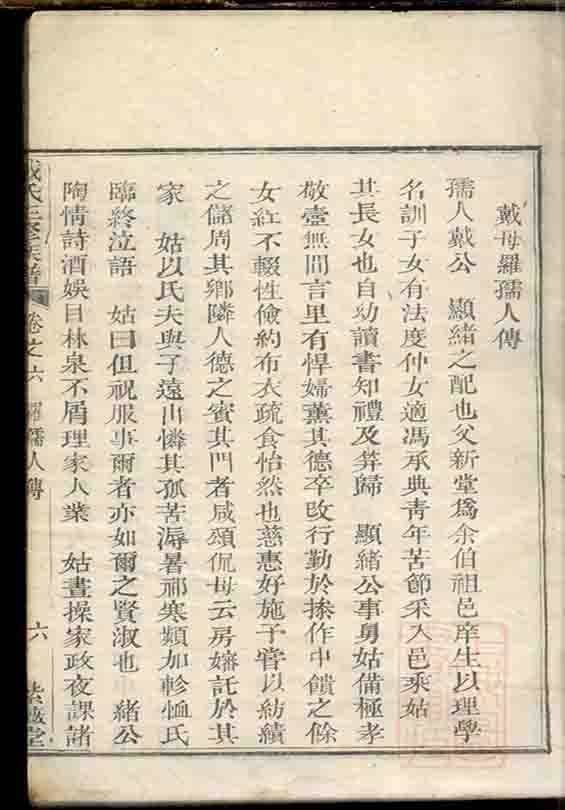 戴母羅孺人傳
孺人戴公 顯緒之配也父新堂爲余伯祖邑庠生以理學
名訓子女有法度仲女適馮承典青年苦節采入邑乘姑
其長女也自幼讀書知禮及笄歸 顯緒公事舅姑備極孝
敬壼無間言里有悍婦薰其德卒改行勤於操作中饋之餘
女紅不輟性儉約布衣疏食怡然也慈惠好施予嘗以紡績
之儲周其鄉隣人德之賓其門者咸頌侃母云房嬸託於其
家 姑以氏夫與子遠出憐其孤苦溽暑祁寒類加軫恤氏
臨終泣語 姑曰但祝服事爾者亦如爾之賢淑也 緒公
陶情詩酒娛目林泉不屑理家人業 姑晝操家政夜課諸
氏三修族譜 卷之六 羅孺人傳 六 紫薇堂